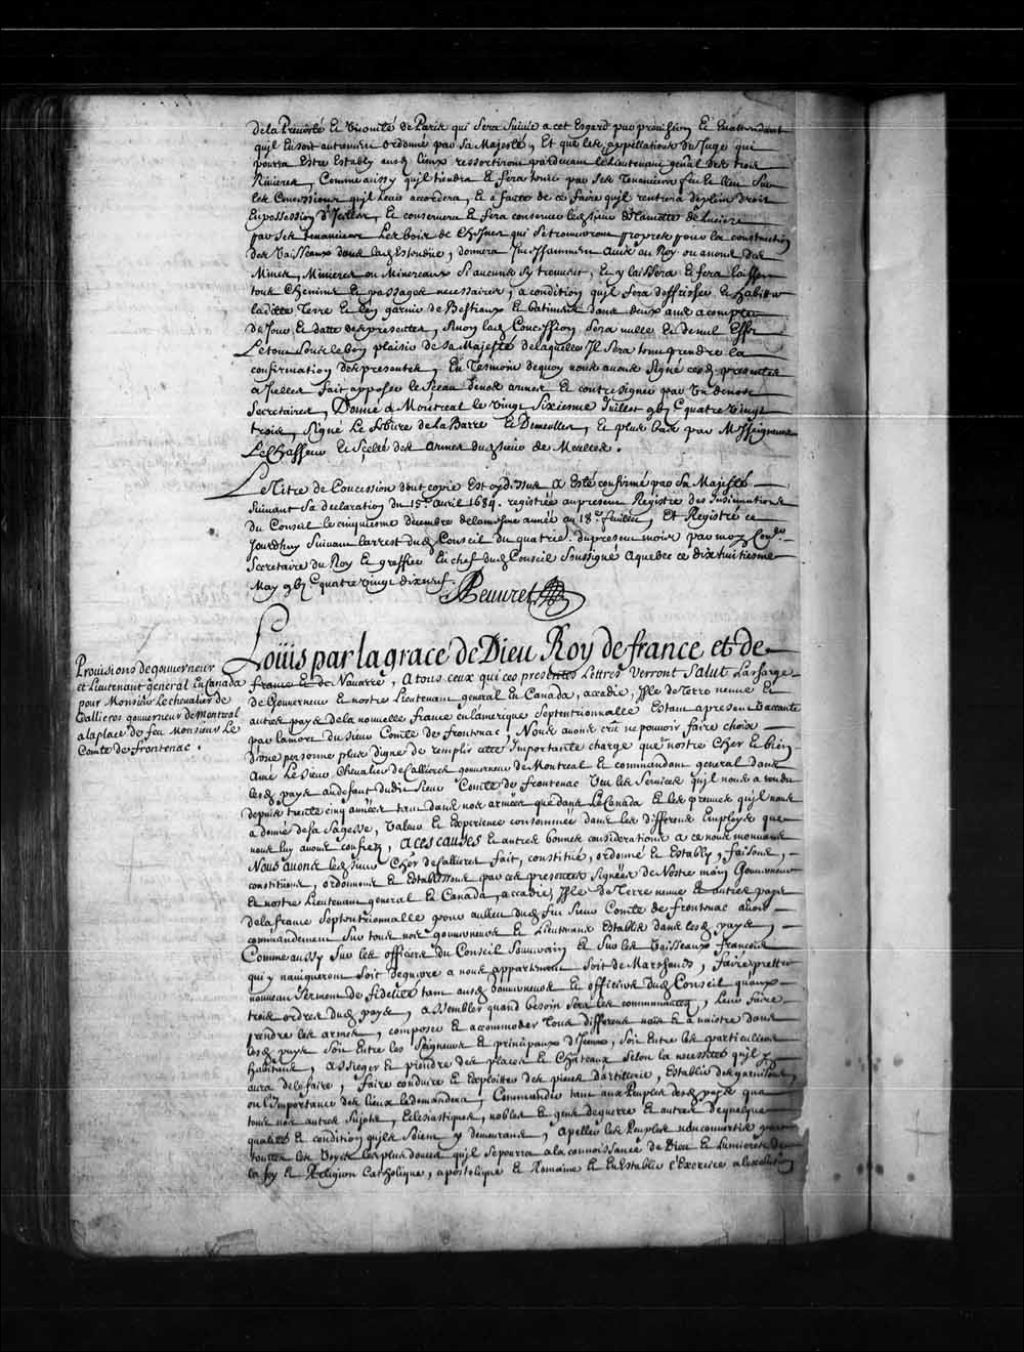 de la Prevosté et Vicomté de Paris qui sera suivie a cet Esgard par provision Et En attendant
quil En soit autrement ordonné par sa Majesté, Et que les appellations du Juge qui
pourra Estre Estably ausd. lieux ressortiront pardevant le Lieutenant gnãl des trois
Rivieres, Comme aussy quil tiendra Et fera tenir par ses Tenanciers feu Et lieu sur
les Concessions quil leurs accordera, Et a faute de ce faire quil rentrera de plein droit
En possession d'Icelles, Et conservera Et fera conserver
par ses tenanciers Les bois de Chesnes qui se trouveront propres pour la construction
des Vaisseaux dans lad. Estendüe, donnera Incessamment avis au Roy ou a nous des
Mines, Minieres ou Mineraux si aucuns s'y trouvent, Et y laissera Et fera laisser
tous Chemins Et passages necessaires, a condition quil fera deffricher Et habituer
lad.ite Terre Et la garnir de Bestiaux Et batimens dans deux ans a compter
du Jour Et datte des presentes, sinon lad. Concession sera nulle Et de nul Effet
Le tout sous le bon plaisir de sa Majesté de laquelle Il sera tenu prendre la
confirmation des presentes, En Tesmoin dequoy nous avons signé cesd. presentes
a Icelles fait apposer le sceau de nos armes Et contresigner par Un de nos
Secretaires, Donné a Montreal le vingt sixiesme Juillet 9bj.C quatre vingt
trois, Signé Le febvre de la Barre Et Demeulles, Et plus bas par Messeigneurs
Le Chasseur Et Scellé des armes dud. sieur de Meulles.
Le Titre de Concession dont copie Est cy dessus a Esté confirmé par sa Majesté
Suivant sa declaration du 15e. avril 1684. registrée au present Registre des Insinuations
du Conseil le cinquiesme Decembre de la mesme année au 18e. feuillet, Et Registré ce
Jourdhuy Suivant larrest dud. Conseil du quatrie. du present mois par moy Conser.
Secretaire du Roy Et greffier En chef dud. Conseil soussigné a quebec ce dix huitiesme
May 9bj.C quatre vingt dix neuf.
Peuvret
Provisions de gouverneur
et Lieutenant general En Canada
pour Monsieur Le chevalier de
Callieres gouverneur de Montreal
a la place de feu Monsieur Le
Comte de frontenac.
Loüis par la grace de Dieu Roy de france et de
france Et de Navarre, A tous ceux qui ces presentes Lettres verront Salut La charge
de Gouverneur Et nostre Lieutenant general En Canada, accadie, Isle de Terre neuve Et
autres pays de la nouvelle france en lamerique Septentrionnalle Estant a present Vaccante
par la mort du sieur Comte de frontenac, Nous avons crû ne pouvoir faire choix
d'une personne plus digne de remplir cette Importante charge que nostre Cher Et bien
Amé Le sieur Chevalier de Callieres gouverneur de Montreal Et commandant general dans
lesd. pays au deffaut dudit sieur Comte de frontenac Veu les services quil nous a rendu
depuis trente cinq années tant dans nos armées que dans Le Canada Et les preuves quil nous
a donné de sa sagesse, Valeur Et Experience consommée dans les differens Employs que
nous luy avons confiez, A CES CAUSES Et autres bonnes considerations a ce nous mouvans
Nous avons led. sieur Cher. de Callieres fait, constitué, ordonné Et Estably, faisons,
constituons, ordonnons Et Establissons par ces presentes signées de Nostre main Gouverneur
Et nostre Lieutenant general En Canada, accadie, Isle de Terre neuve Et autres pays
de la france Septentrionnalle pour au lieu dud. feu sieur Comte de frontenac avoir
commandement sur tous nos gouverneurs Et Lieutenans Establis dans lesd. pays,
Comme aussy sur les officiers du Conseil Souverain Et sur les Vaisseaux françois
qui y navigueront soit de guerre a nous appartenans soit de Marchands, faire prester
nouveau serment de fidelité tant ausd. Gouverneurs Et officiers dud. Conseil quaux
trois ordres dud. pays, assembler quand besoin sera les communautez, Leur faire
prendre les armes, composer Et accommoder Tous differens nais Et a naistre dans
lesd. pays soit Entre les Seigneurs Et principaux d'Iceux, soit Entre les particuliers
habitans, assieger Et prendre des places Et Chateaux selon la necessité quil y
aura de le faire, faire conduire Et Exploitter des pieces dartillerie, Establir des garnisons
ou l'Importance des lieux le demandera, Commander tant aux Peuples desd. pays qua
tous nos autres Sujets, Eclesiastiques, nobles Et gens de guerre Et autres de quelque
qualité Et condition quils soient y demeurans, appeller les Peuples non convertis par
toutes les Voyes les plus douces quil se pourra a la connoissance de Dieu Et Lumieres de
la foy Et Religion Catholique, apostolique Et Romaine Et En Establir l'Exercice a lexclusion